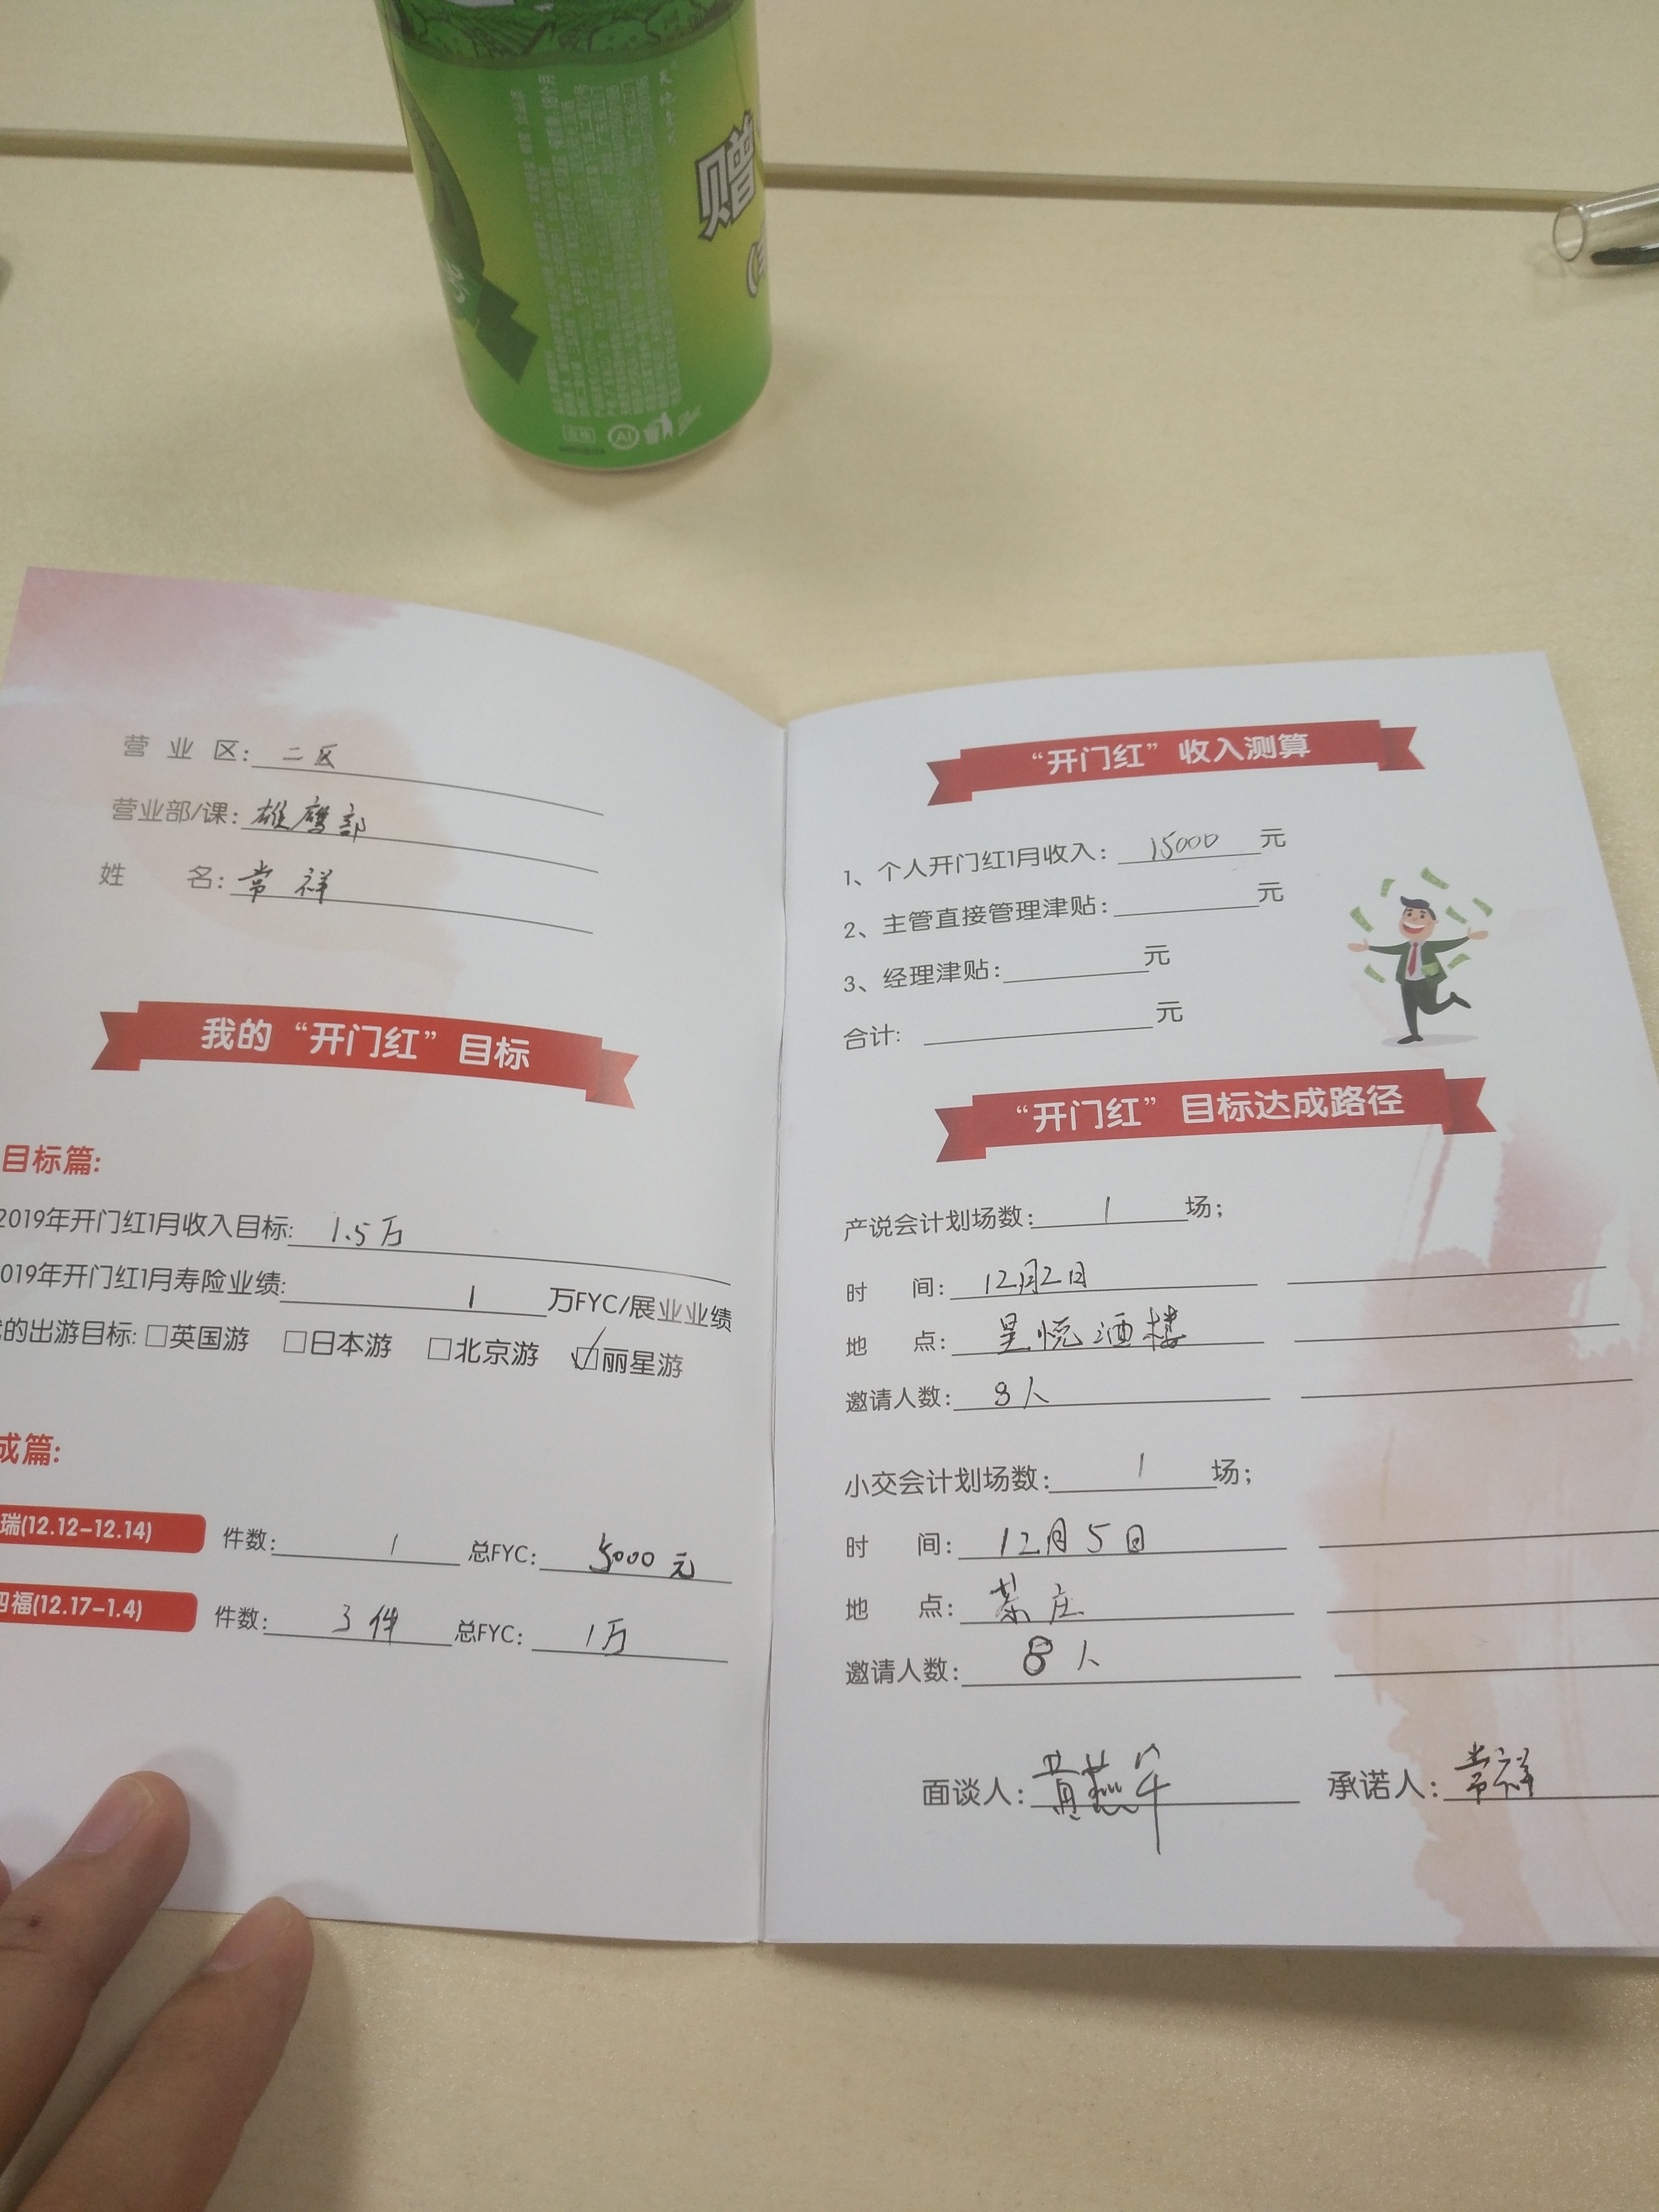 赠
营业区: 二区
营业部/课: 雄鹰部
姓名: 常祥
我的“开门红”目标
目标篇:
2019年开门红1月收入目标: 1.5万
019年开门红1月寿险业绩: 1 万FYC/展业业绩
的出游目标: □英国游 □日本游 □北京游 ☑丽星游
成篇:
瑞(12.12-12.14) 件数: 1 总FYC: 5000元
四福(12.17-1.4) 件数: 3件 总FYC: 1万
“开门红”收入测算
1、个人开门红1月收入: 15000 元
2、主管直接管理津贴: 元
3、经理津贴: 元
合计: 元
“开门红”目标达成路径
产说会计划场数: 1 场;
时间: 12月2日
地点: 星悦酒楼
邀请人数: 8人
小交会计划场数: 1 场;
时间: 12月5日
地点: 茶庄
邀请人数: 8人
面谈人: 黄燕 承诺人: 常祥